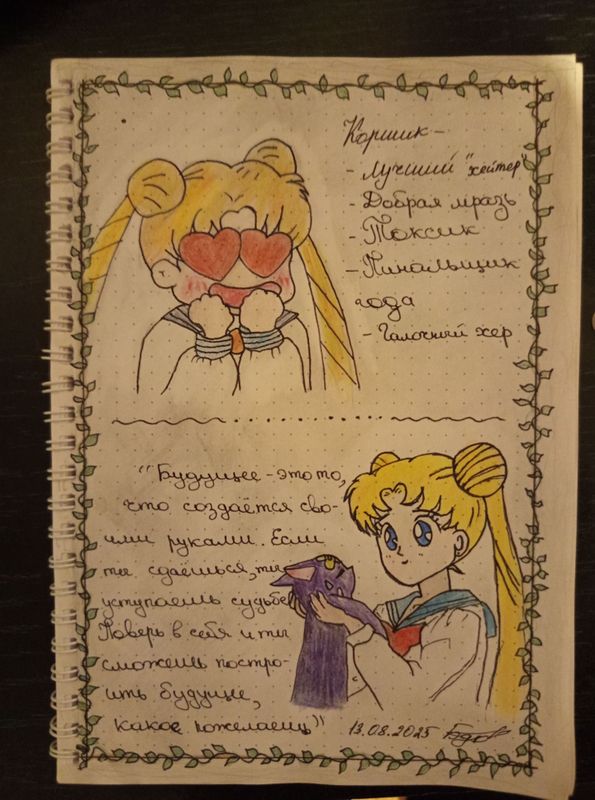 Коршик -
- Лучший "хейтер"
- Добрая мразь
- Токсик
- Пинальщик
года
- Галочный хер
"Будущее - это то,
что создаётся сво-
ими руками. Если
ты сдаёшься, ты
уступаешь судьбе
Поверь в себя и ты
сможешь постро-
ить будущее,
какое пожелаешь"
13.08.2025